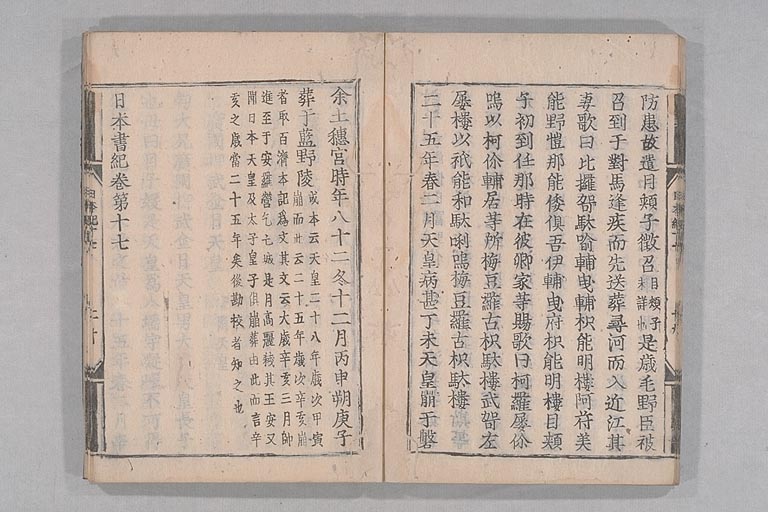 防患故遣目頬子徴召目頬子未詳也是歳毛野臣被
召到于對馬逢疾而死送葬尋河而入近江其
妻歌曰比攞哿駄喩輔曳輔枳能朋樓阿符美
能野愷那能倭倶吾伊輔曳府枳能朋樓目頬
子初到任那時在彼郷家等賜歌曰柯羅屨尒
嗚以柯尒輔居等所梅豆羅古枳駄樓武哿左
屨樓以祇能和駄唎嗚梅豆羅古枳駄樓
二十五年春二月天皇病甚丁未天皇崩于磐
余玉穗宮時年八十二冬十二月丙申朔庚子
葬于藍野陵或本云天皇二十八年歳次甲寅
崩而此云二十五年歳次辛亥崩
者取百濟本記爲文其文云大歳辛亥三月師
進至于安羅營乞乇城是月高麗弑其王安又
聞日本天皇及太子皇子倶崩薨由此而言辛
亥之歳當二十五年矣後勘校者知之也
日本書紀卷第十七